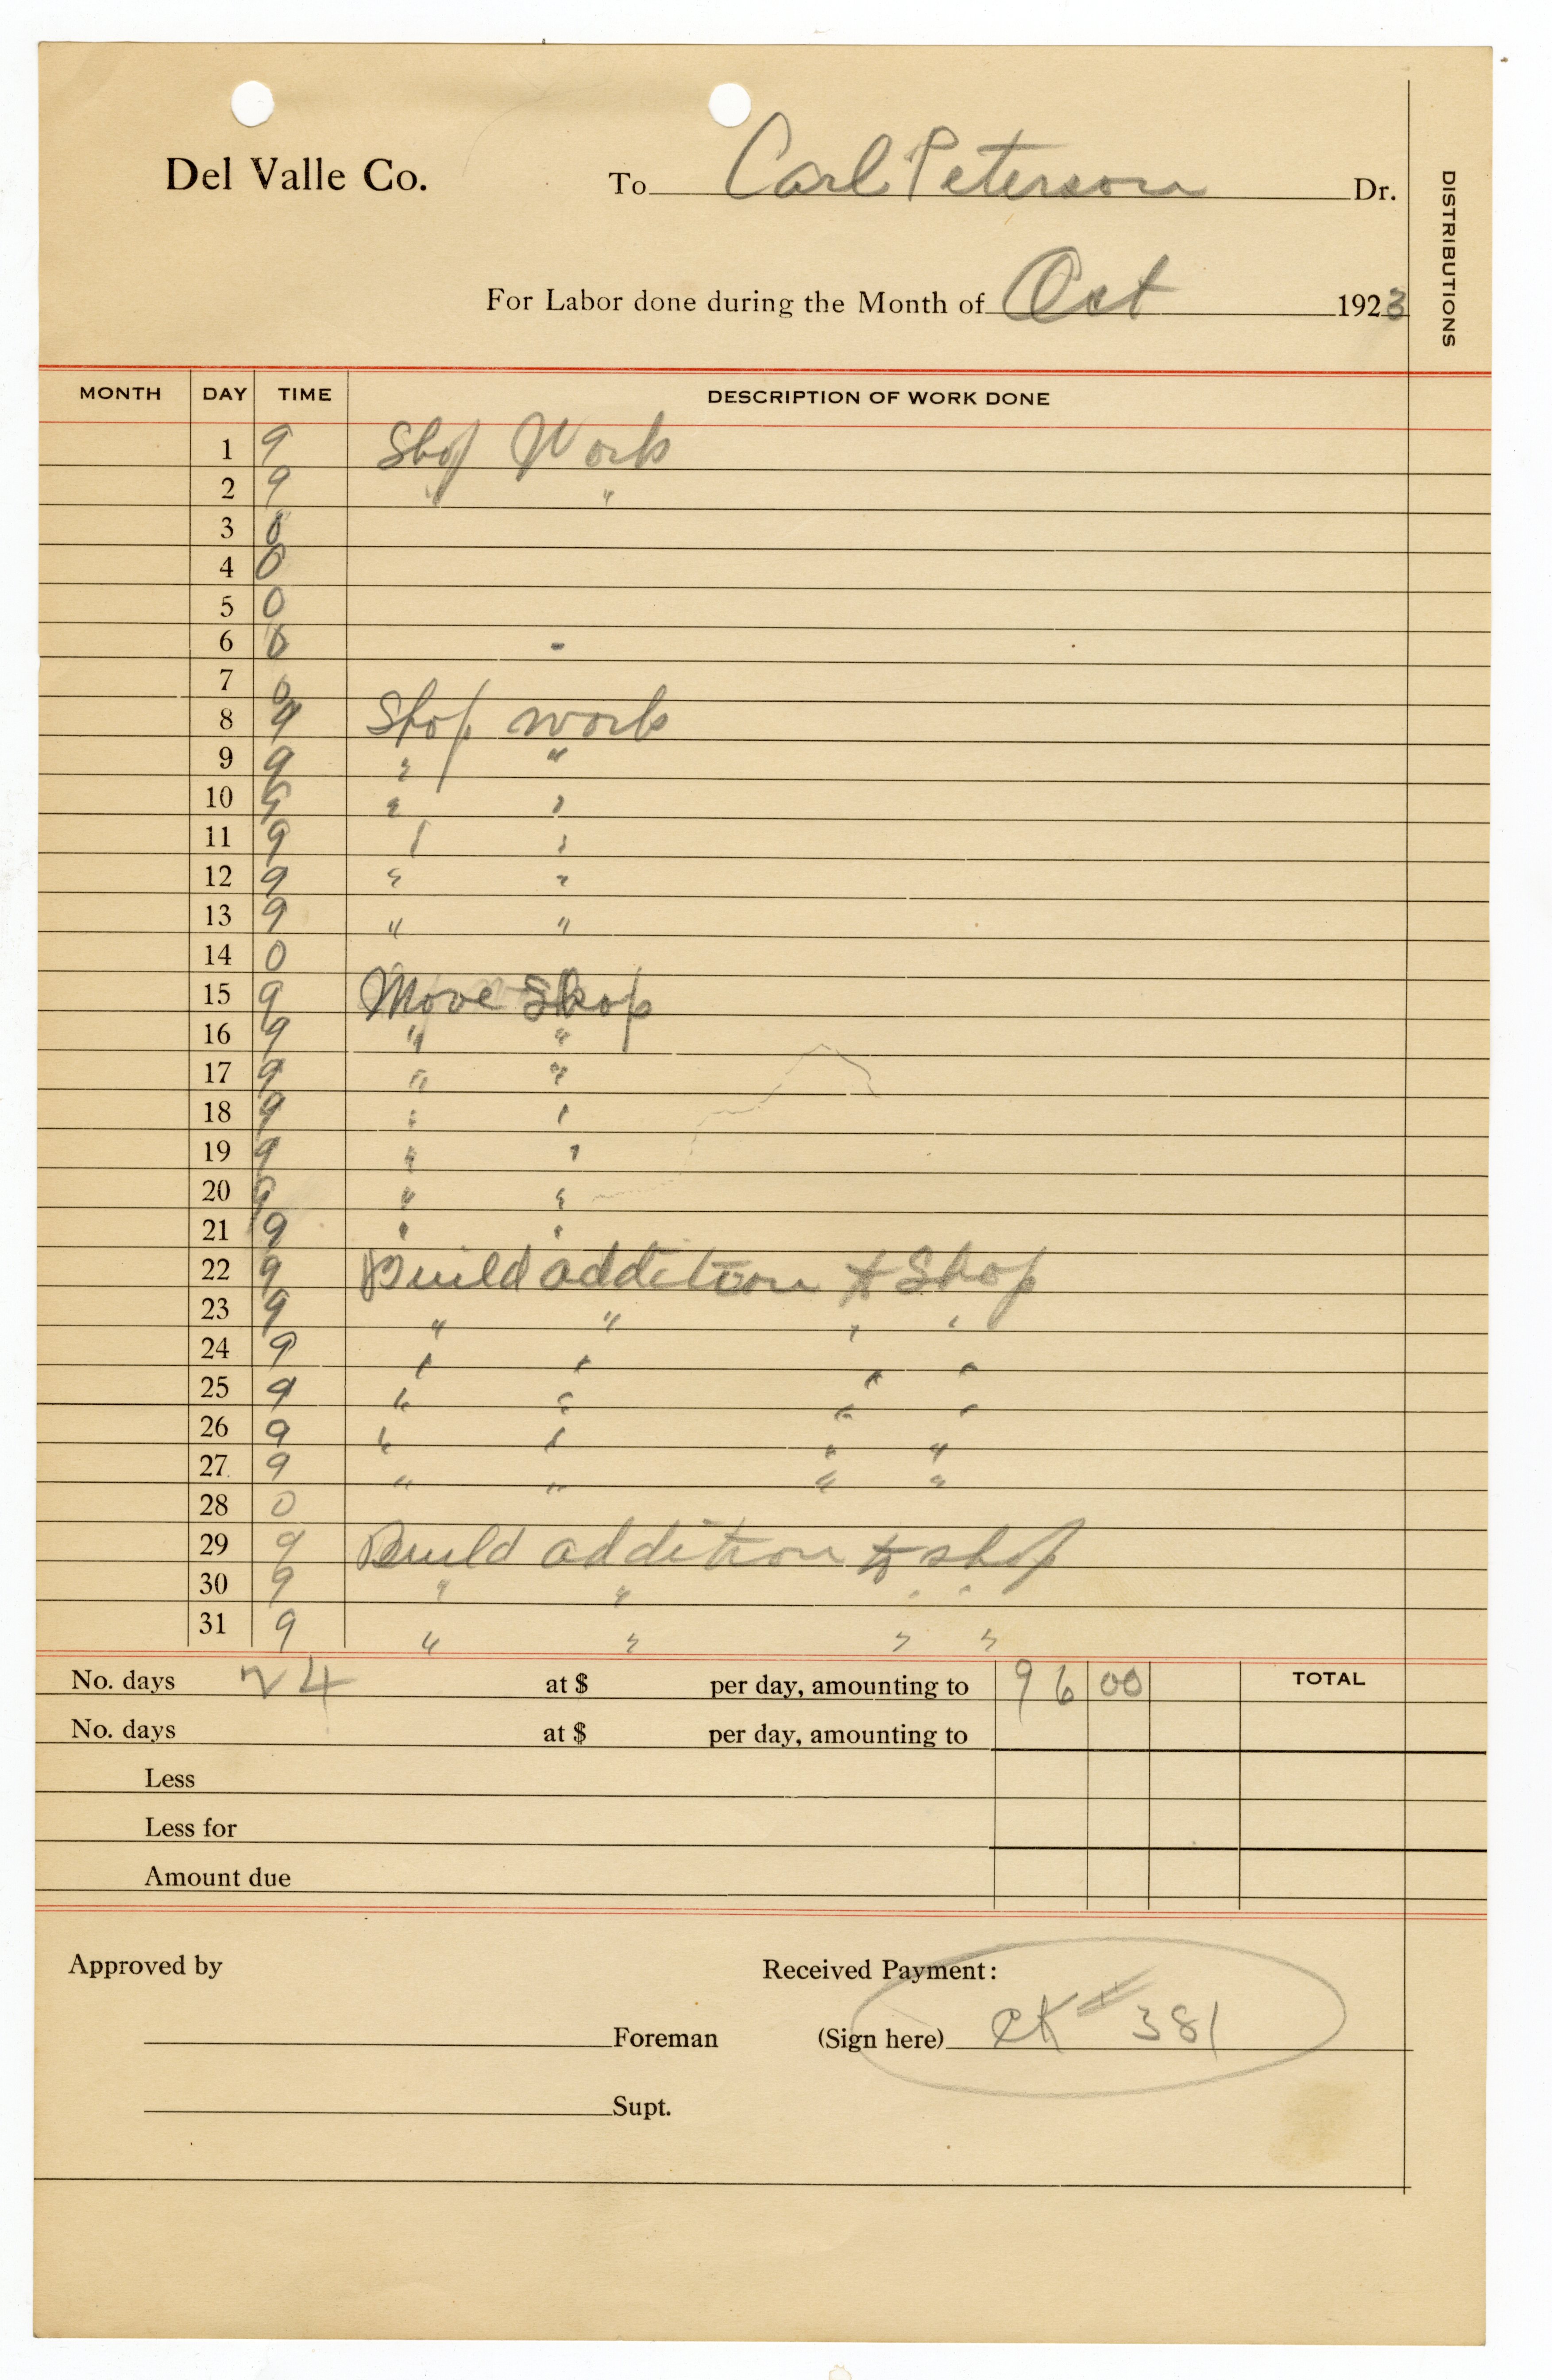 Del Valle Co. To Carl Peterson Dr.
DISTRIBUTIONS
For Labor done during the Month of Oct 1923
MONTH DAY TIME DESCRIPTION OF WORK DONE
1 9 Shop Work
2 9 " "
3 0
4 0
5 0
6 0
7 0
8 9 Shop work
9 9 " "
10 9 " "
11 9 " "
12 9 " "
13 9 " "
14 0
15 9 Move Shop
16 9 " "
17 9 " "
18 9 " "
19 9 " "
20 9 " "
21 9 " "
22 9 Build addition to Shop
23 9 " " " "
24 9 " " " "
25 9 " " " "
26 9 " " " "
27 9 " " " "
28 0
29 9 Build addition to shop
30 9 " " " "
31 9 " " " "
No. days 24 at $ per day, amounting to 96 00 TOTAL
No. days at $ per day, amounting to
Less
Less for
Amount due
Approved by Received Payment:
Foreman (Sign here) CK # 381
Supt.